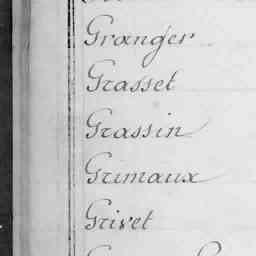 Granger
Grasset
Grassin
Grimaux
Grivet